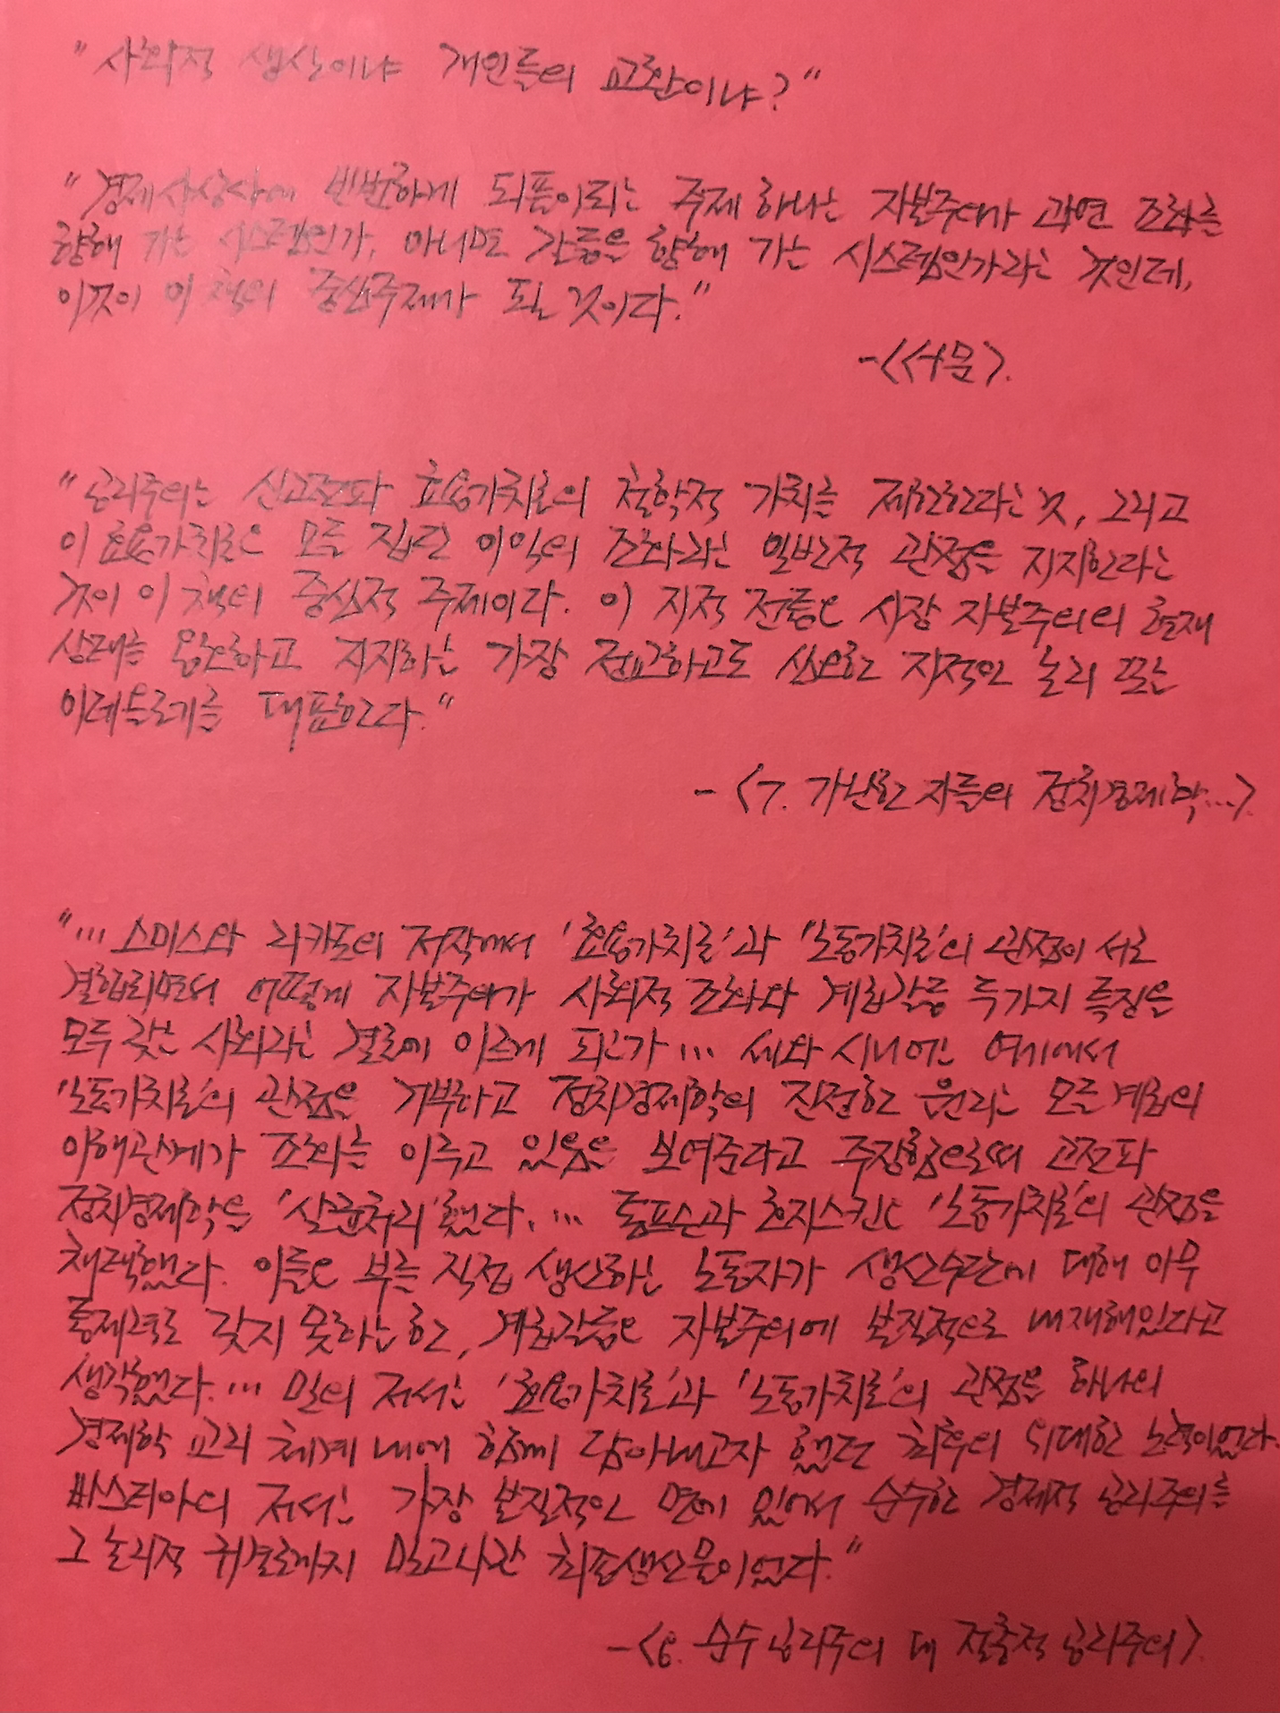 "사회적 생산이냐 개인들의 교환이냐?"
"경제사상사에 빈번하게 되풀이되는 주제 하나는 자본주의가 과연 조화를
향해 가는 시스템인가, 아니면 갈등을 향해 가는 시스템인가라는 것인데,
이것이 이 책의 중심주제가 될 것이다."
-<서문>.
"공리주의는 신고전파 효용가치론의 철학적 가치를 제공한다는 것, 그리고
이 효용가치론은 모든 집단 이익의 조화라는 일반적 관점을 지지한다는
것이 이 책의 중심적 주제이다. 이 지적 전통은 시장 자본주의의 현재
상태를 옹호하고 지지하는 가장 정교하고도 심오한 지적인 논리 또는
이데올로기를 대표한다."
- <7. 가난한 자들의 정치경제학...>.
"... 스미스와 리카도의 저작에서 '효용가치론'과 '노동가치론'의 관점이 서로
결합되면서 어떻게 자본주의가 사회적 조화와 계급갈등 두가지 특징을
모두 갖는 사회라는 결론에 이르게 되는가... 세와 시니어는 여기에서
'노동가치론'의 관점을 거부하고 정치경제학의 진정한 원리는 모든계급의
이해관계가 조화를 이루고 있음을 보여준다고 주장함으로써 고전파
정치경제학을 '살균처리'했다. ... 톰프슨과 호지스킨은 '노동가치론'의 관점을
채택했다. 이들은 부를 직접 생산하는 노동자가 생산수단에 대해 아무
통제력도 갖지 못하는한, 계급갈등은 자본주의에 본질적으로 내재해있다고
생각했다.... 밀의 저서는 '효용가치론'과 '노동가치론'의 관점을 하나의
경제학 교리 체계 내에 함께 담아내고자 했던 최후의 위대한 노력이었다.
바스티아의 저서는 가장 본질적인 면에 있어서 순수한 경제적 공리주의를
그 논리적 귀결로까지 밀고나간 최종생산물이었다."
-<6. 순수 공리주의 대 절충적 공리주의>.